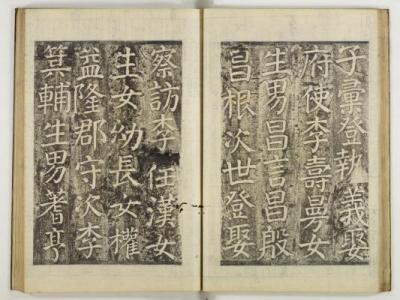 子彙登執義娶
府使李壽㫒女
生男昌言昌殷
昌根次世登娶
察訪李任漢女
生女幼長女權
益隆郡守次李
箕輔生男耆亨